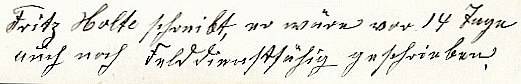 Fritz Holte schreibt, er wäre vor 14 Tage
auch noch Felddienstfähig geschrieben.